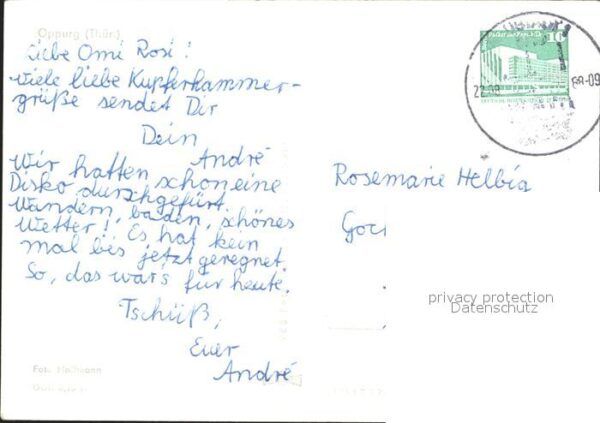 Oppurg (Thür.)
Liebe Omi Rosi!
Viele liebe Kupferhammer-
grüße sendet Dir
Dein
André
Wir hatten schon eine
Disko durchgefürt.
Wandern, baden, schönes
Wetter! Es hat kein
mal bis jetzt geregnet.
So, das war's für heute.
Tschüß,
Euer
André
Foto
10
22.
-09
Rosemarie Helbia
privacy protection
Datenschutz